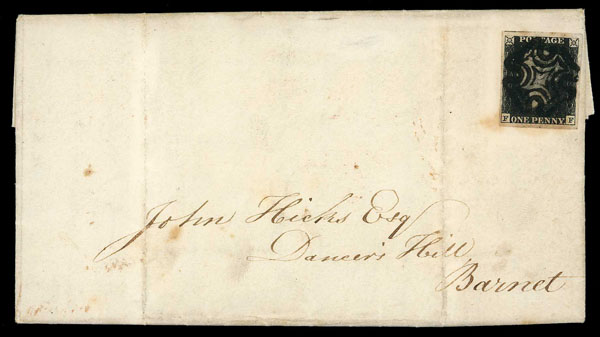 POSTAGE
F ONE PENNY. F
John Hicks Esq
Dancer's Hill,
Barnet